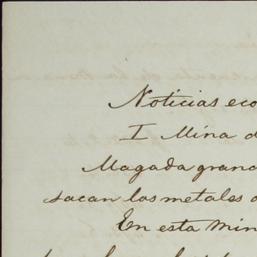 Noticias eco
I Mina d
Magada granc
sacan los metales a
En esta min